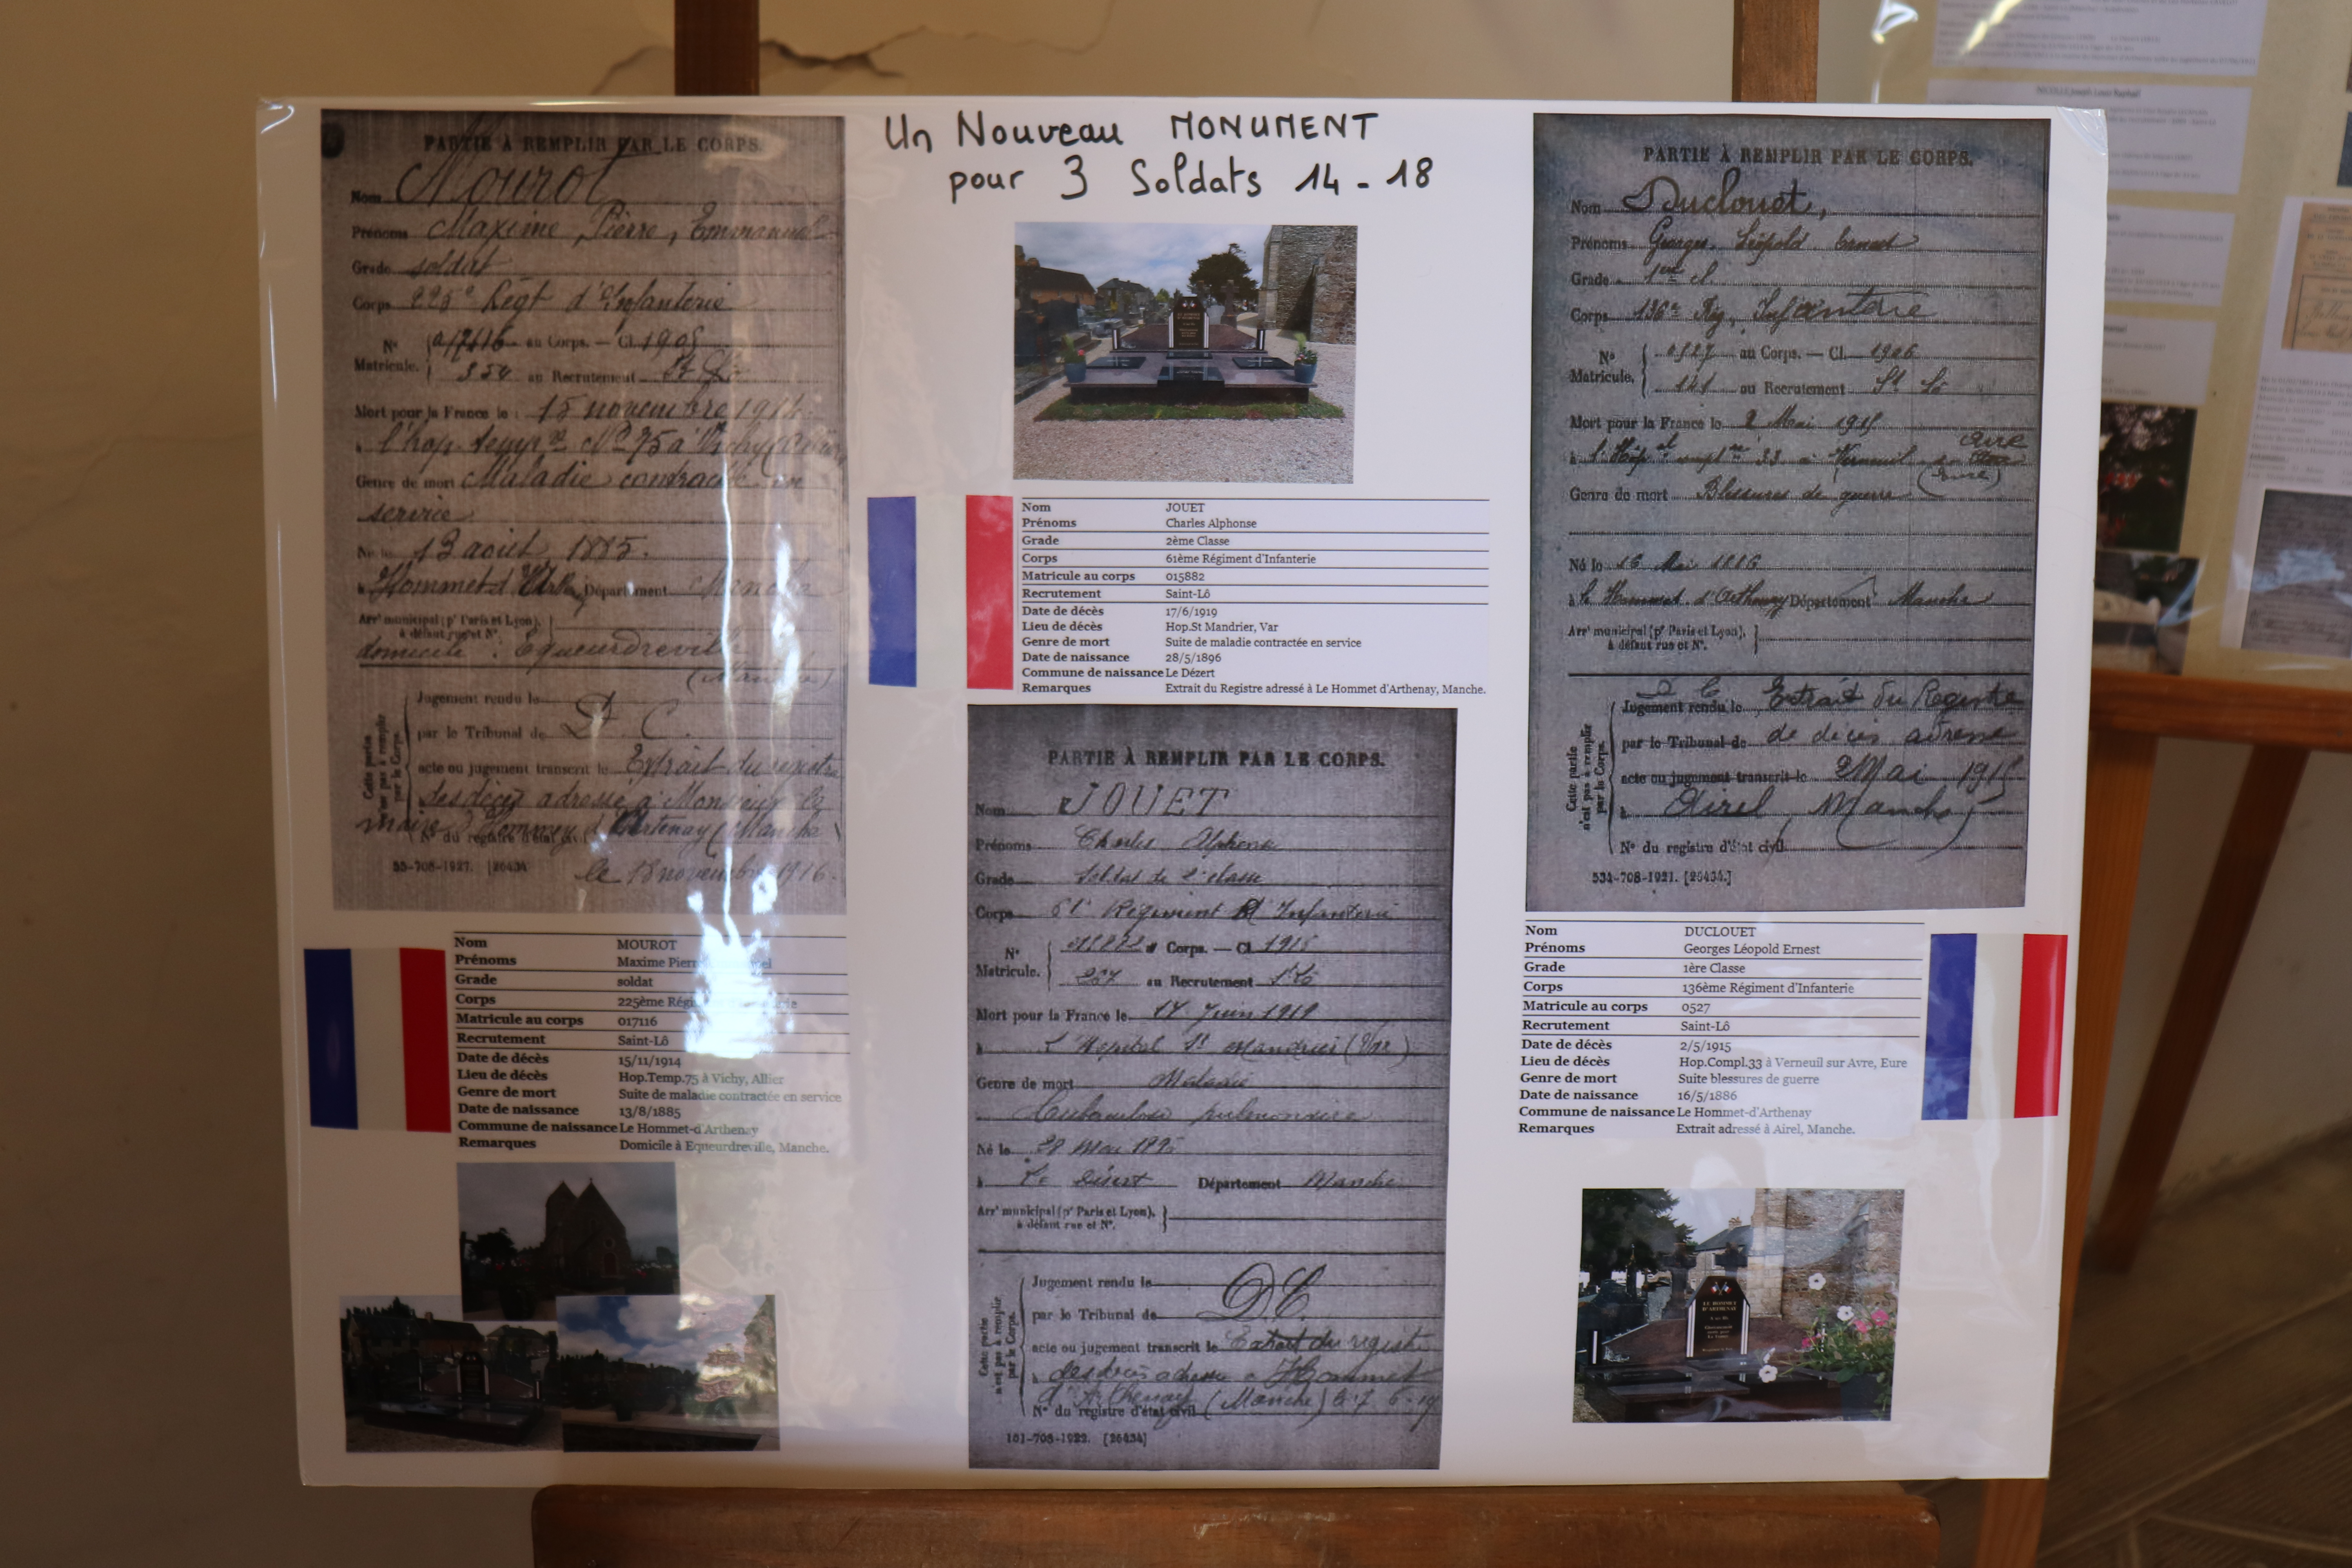 Un Nouveau MONUMENT
pour 3 Soldats 14-18
PARTIE À REMPLIR PAR LE CORPS.
Nom Mourot
Prénoms Maxime, Pierre, Emmanuel
Grade soldat
Corps 225e Régt d'Infanterie
No au Corps. — Cl. 1905
Matricule. 354 au Recrutement St Lô
Mort pour la France le 15 novembre 1914
à l'hop. temp.re No 75 à Vichy
Genre de mort Maladie contractée en
service
Né le 13 août 1885.
à Hommet d' Département Manche
Arrt municipal (pr Paris et Lyon),
à défaut rue et No.
domicile : Equeurdreville
(Manche)
Cette partie n'est pas à remplir par le Corps.
Jugement rendu le
par le Tribunal de D. C.
acte ou jugement transcrit le Extrait du registre
des décès adressé à Monsieur le
maire d'Hommey d'Artenay (Manche)
No du registre d'état civil
le 18 novembre 1916.
Nom MOUROT
Prénoms Maxime Pierre
Grade soldat
Corps 225ème
Matricule au corps 017116
Recrutement Saint-Lô
Date de décès 15/11/1914
Lieu de décès Hop.Temp.75 à Vichy, Allier
Genre de mort Suite de maladie contractée en service
Date de naissance 13/8/1885
Commune de naissance Le Hommet-d'Arthenay
Remarques Domicile à Equeurdreville, Manche.
Nom JOUET
Prénoms Charles Alphonse
Grade 2ème Classe
Corps 61ème Régiment d'Infanterie
Matricule au corps 015882
Recrutement Saint-Lô
Date de décès 17/6/1919
Lieu de décès Hop.St Mandrier, Var
Genre de mort Suite de maladie contractée en service
Date de naissance 28/5/1896
Commune de naissance Le Dézert
Remarques Extrait du Registre adressé à Le Hommet d'Arthenay, Manche.
PARTIE À REMPLIR PAR LE CORPS.
Nom JOUET
Prénoms Charles Alphonse
Grade Soldat de 2e classe
Corps 61e Régiment d'Infanterie
No au Corps. — Cl. 1915
Matricule. 267 au Recrutement St Lô
Mort pour la France le 17 Juin 1919
à L'Hopital St Mandrier (Var)
Genre de mort Maladie
Tuberculose pulmonaire
Né le 28 Mai
à Le Désert Département Manche
Arrt municipal (pr Paris et Lyon),
à défaut rue et No.
Cette partie n'est pas à remplir par le Corps.
Jugement rendu le
par le Tribunal de D. C.
acte ou jugement transcrit le Extrait du registre
des décès adressé à Hommet
d'Arthenay (Manche)
No du registre d'état civil
101-708-1922. [26434]
PARTIE À REMPLIR PAR LE CORPS.
Nom Duclouet,
Prénoms Georges Léopold Ernest
Grade 1ère cl.
Corps 136e Rég. Infanterie
No 0527 au Corps. — Cl. 1906
Matricule. 141 au Recrutement St Lô
Mort pour la France le 2 Mai 1915
à l'Hôp.al compl.re 33 à Verneuil s. Avre
(Eure)
Genre de mort Blessures de guerre
Né le 16 Mai 1886
à le Hommet d'Arthenay Département Manche
Arrt municipal (pr Paris et Lyon),
à défaut rue et No.
Cette partie n'est pas à remplir par le Corps.
D C
Jugement rendu le Extrait du Registre
par le Tribunal de de décès adressé
acte ou jugement transcrit le 2 Mai 1915
à Airel Manche
No du registre d'état civil
534-708-1921. [26434.]
Nom DUCLOUET
Prénoms Georges Léopold Ernest
Grade 1ère Classe
Corps 136ème Régiment d'Infanterie
Matricule au corps 0527
Recrutement Saint-Lô
Date de décès 2/5/1915
Lieu de décès Hop.Compl.33 à Verneuil sur Avre, Eure
Genre de mort Suite blessures de guerre
Date de naissance 16/5/1886
Commune de naissance Le Hommet-d'Arthenay
Remarques Extrait adressé à Airel, Manche.
LE HOMMET
D'ARTHENAY